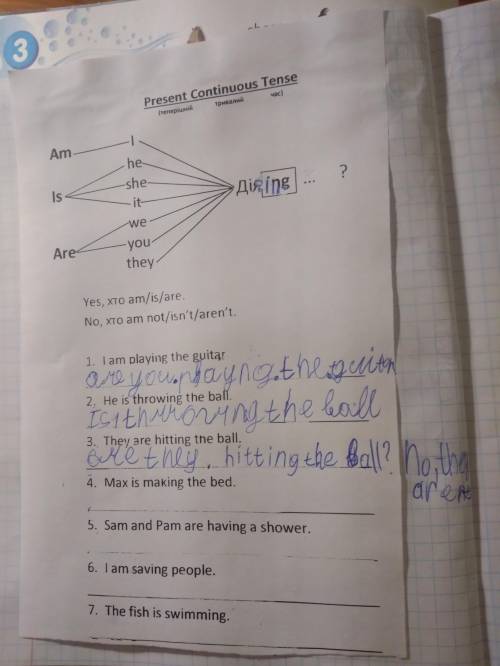 3
Present Continuous Tense
(теперішній тривалий час)
Am
Is
Are
I
he
she
it
we
you
they
Дія ing ... ?
Yes, хто am/is/are.
No, хто am not/isn't/aren't.
1. I am playing the guitar
are you playng the
2. He is throwing the ball.
the ball
3. They are hitting the ball.
are they hitting the Ball? No, the
arent
4. Max is making the bed.
5. Sam and Pam are having a shower.
6. I am saving people.
7. The fish is swimming.